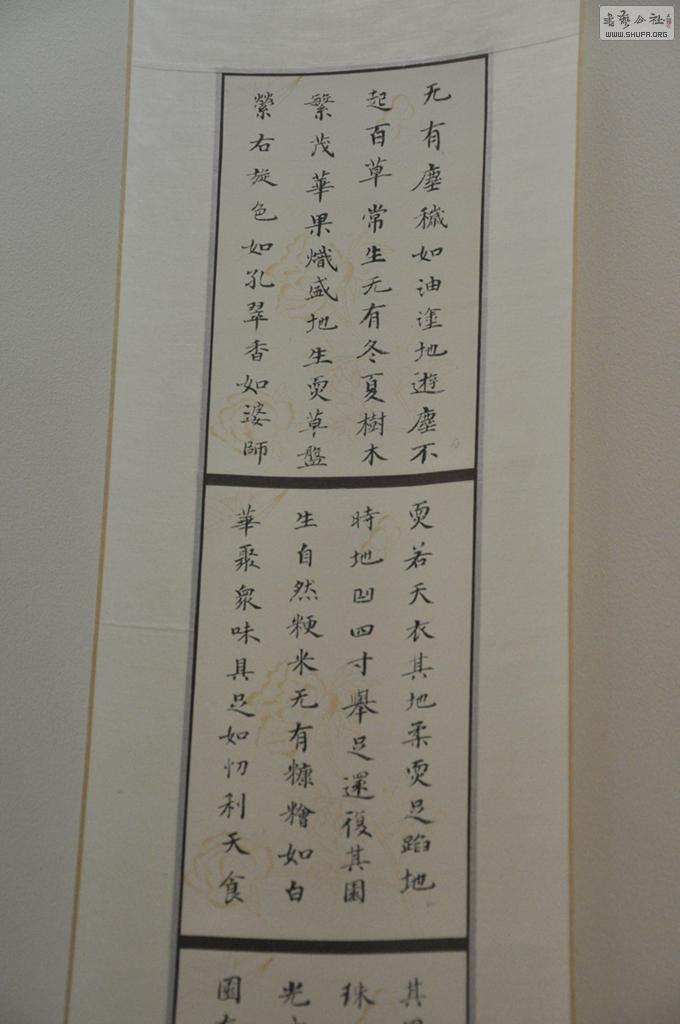 无有塵穢如油塗地遊塵不
起百草常生无有冬夏樹木
繁茂華果熾盛地生耎草盤
縈右旋色如孔翠香如婆師
耎若天衣其地柔耎足蹈地
時地凹四寸舉足還復其園
生自然粳米无有糠糩如白
華聚衆味具足如忉利天食
其
珠
光
園
書藝公社
WWW.SHUFA.ORG